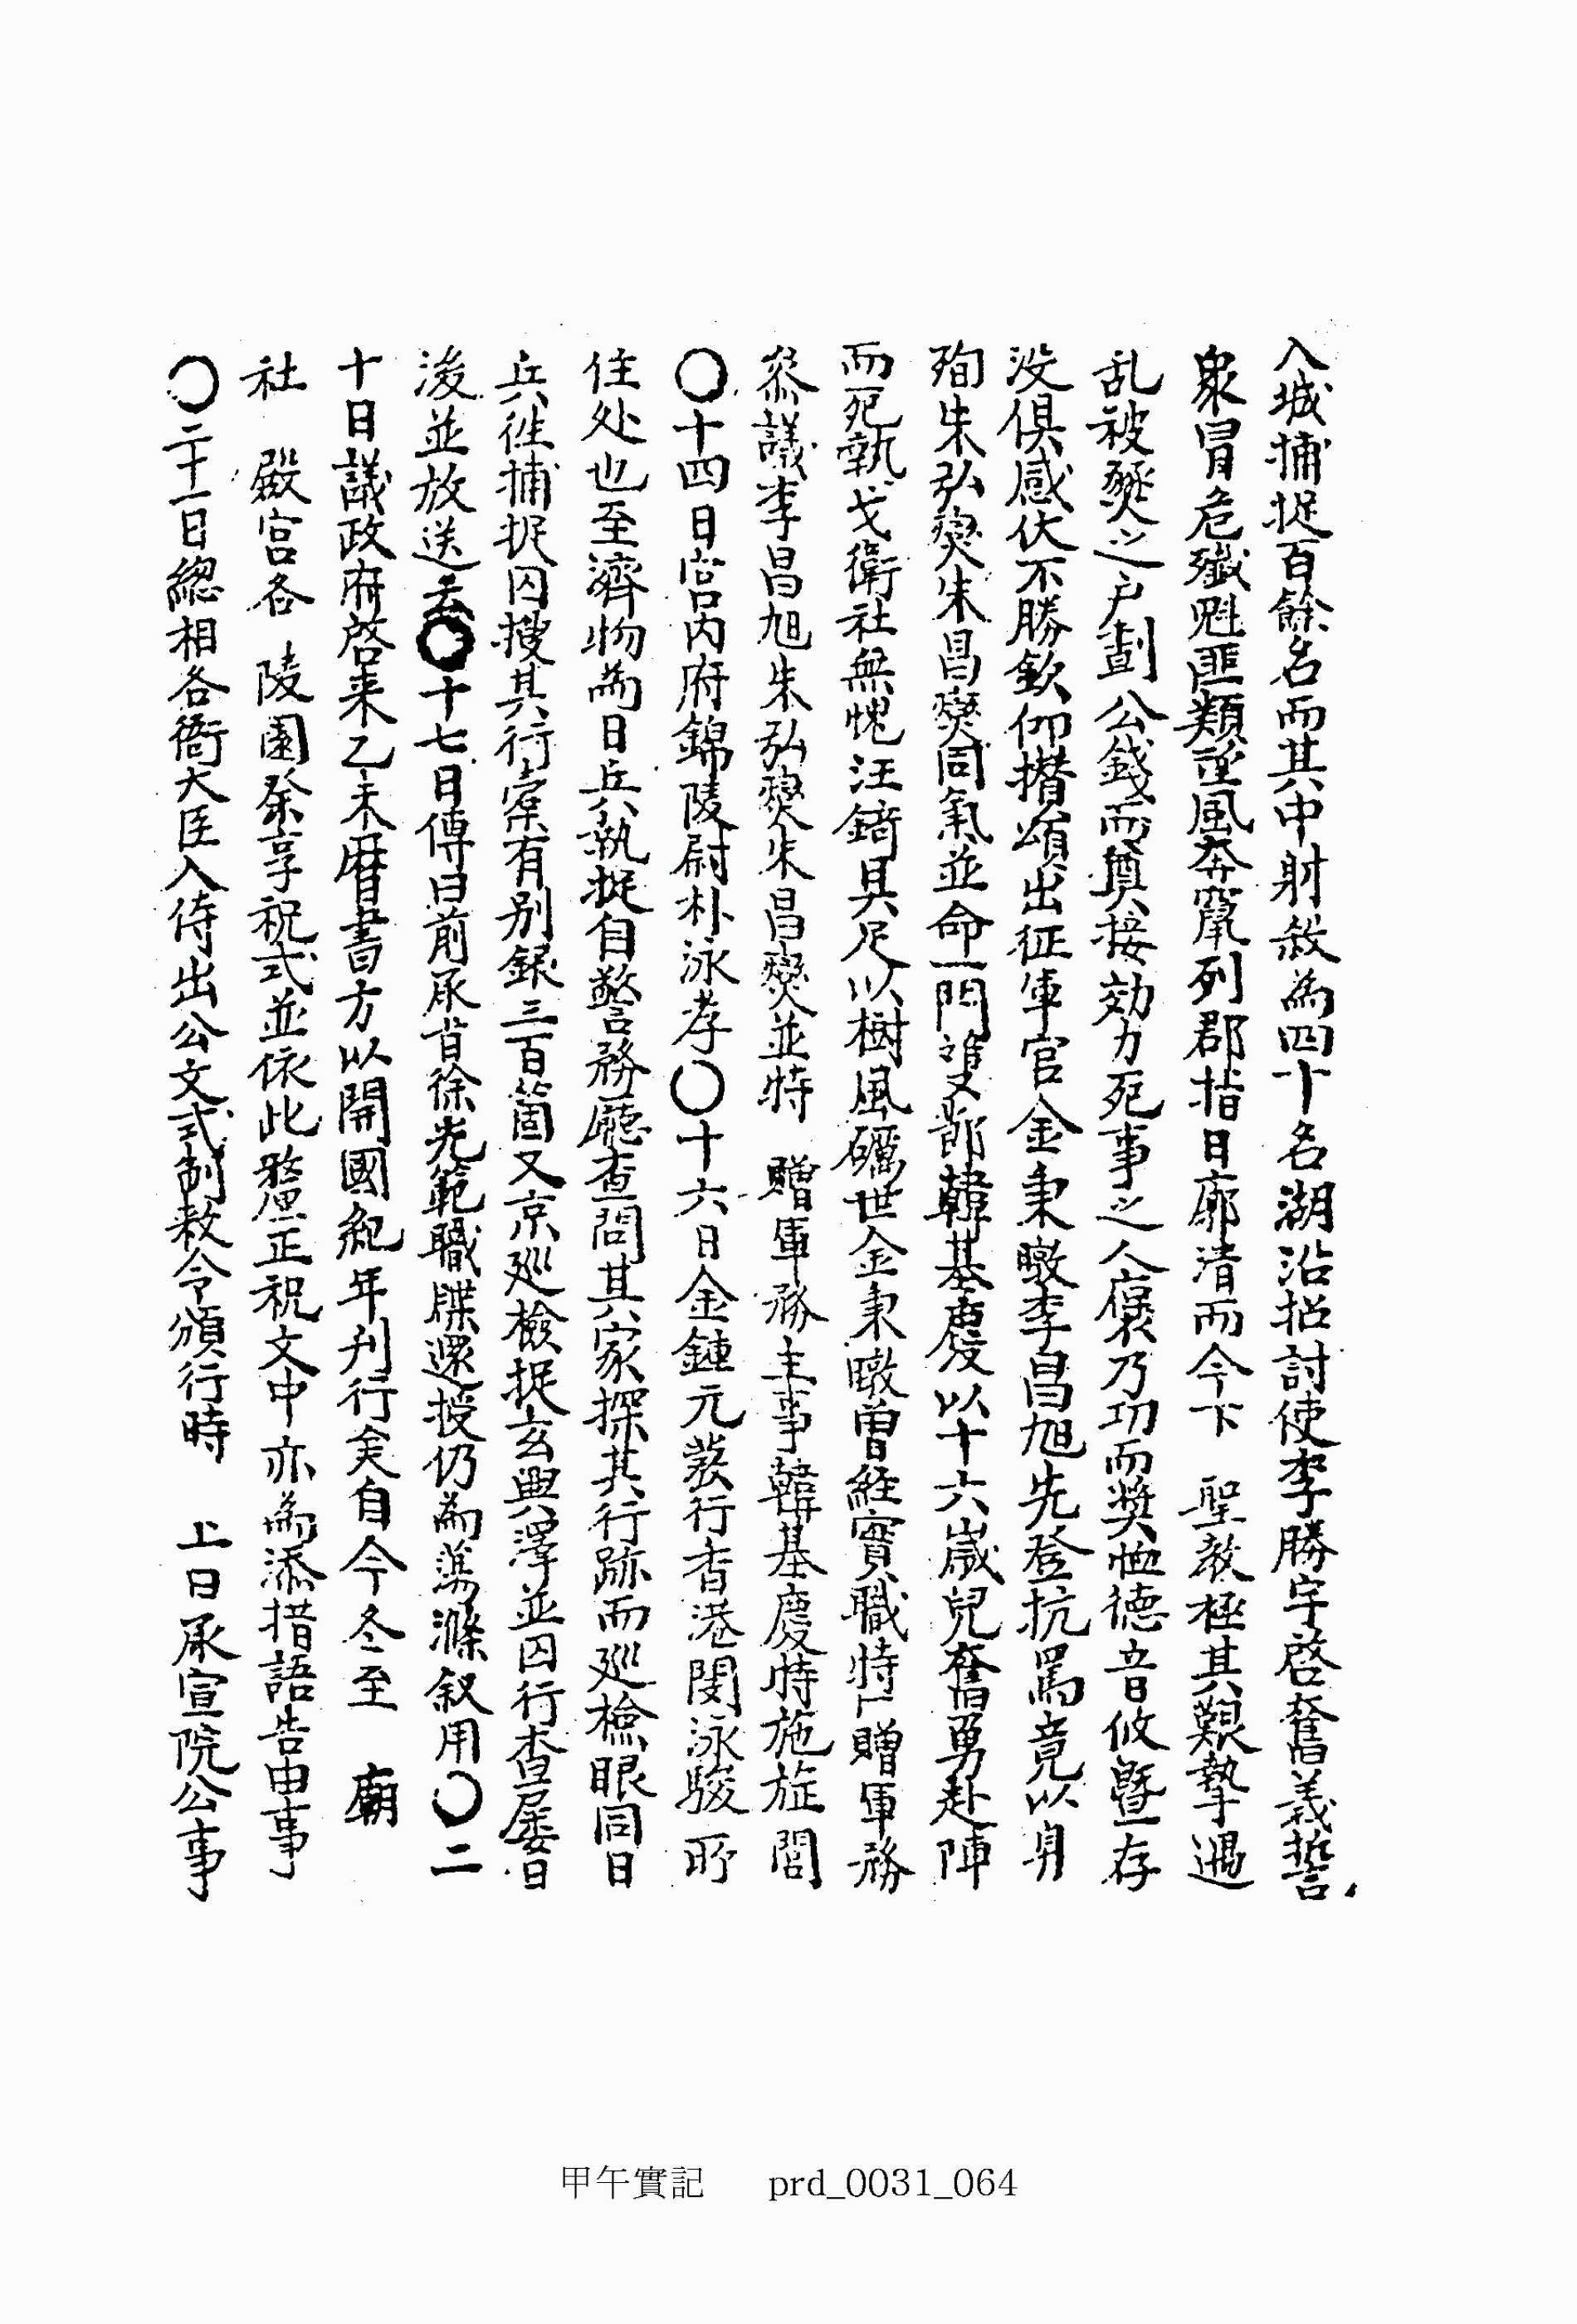 入城捕捉百餘名而其中射殺為四十名湖沿招討使李勝宇啓奮義誓
衆冒危殲魁匪類並風奔竄列郡指日廓清而今下 聖敎極其艱摯遇
乱被燹之戶劃公錢而奠接効力死事之人褒乃功而奬恤德音攸曁存
没俱感伏不勝欽仰攢頌出征軍官金秉暾李昌旭先登抗罵竟以身
殉朱弘燮朱昌燮同氣並命一門雙節韓基慶以十六歲兒奮勇赴陣
而死執戈衛社無愧汪錡具足以樹風礪世金秉暾曾經實職特贈軍務
叅議李昌旭朱弘燮朱昌燮並特 贈軍務主事韓基慶特施㫌閭
〇十四日宮內府錦陵尉朴泳孝〇十六日金鍾元發行香港閔泳駿所
住处也至濟物為日兵執捉自警務廳查問其家探其行跡而廵檢眼同日
兵徃捕捉囚搜其行槖有別銀三百箇又京廵檢捉玄興澤並囚行查屡日
浚並放送云〇十七日傳曰前承旨徐光範職牒還授仍為蕩滌叙用〇二
十日議政府啓来乙未曆書方以開國紀年刋行矣自今冬至 廟
社 殿宮各 陵園祭享祝式並依此釐正祝文中亦為添措語告由事
〇二十一日總相各衙大臣入侍出公文式制敎令頒行時 上曰承宣院公事
甲午實記 prd_0031_064